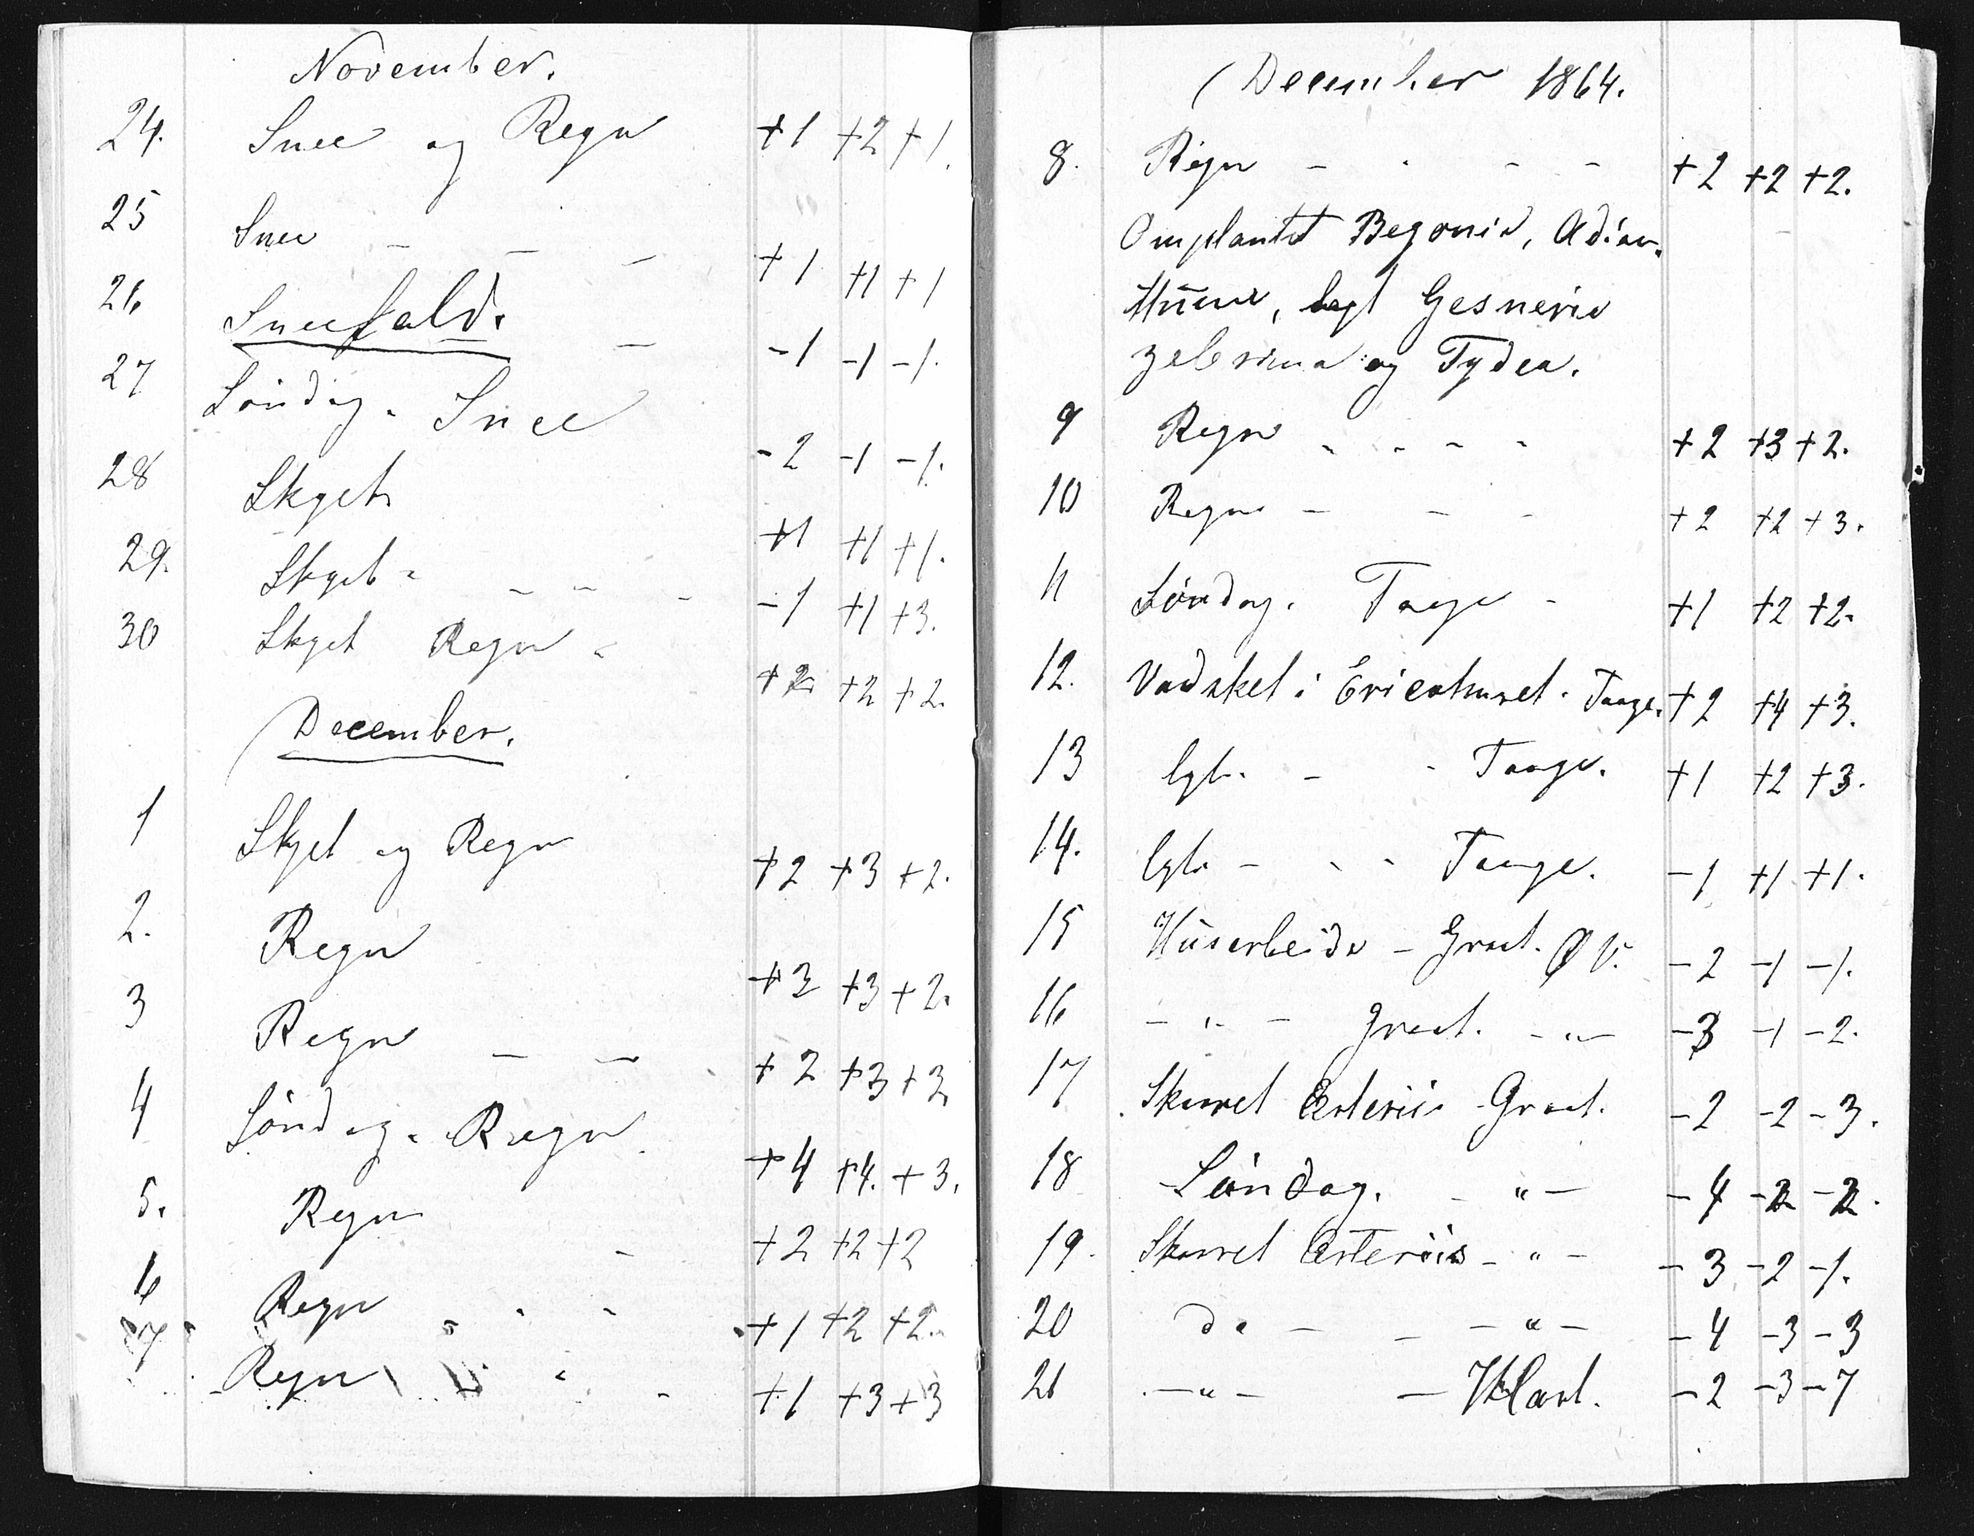 November.
24. Snee og Regn +1 +2 +1.
25 Snee - - - +1 +1 +1
26 Sneefald. - -1 -1 -1.
27 Søndag. Snee -2 -1 -1.
28 Skyet +1 +1 +1.
29. Skyet - - - - -1 +1 +3.
30 Skyet Regn - +2 +2 +2.
December.
1 Skyet og Regn +2 +3 +2.
2. Regn +3 +2.
3 Regn - - +2 +3 +3
4 Søndag. Regn +4 +4. +3.
5. Regn - +2 +2 +2
6 Regn - - - +1 +2 +2.
7 Regn - - +1 +3 +3
December 1864.
8. Regn - - - - +2 +2 +2.
Omplantet Begonia, Adian-
thum, lagt Gesneria
zebrina og Tydea.
9 Regn - - - - +2 +3 +2.
10 Regn - - - +2 +2 +3.
11 Søndag. Taage - +1 +2 +2.
12. Vadsket i Ericahuset. Taage. +2 +4 +3.
13 lgl. - - Taage. +1 +2 +3.
14. lgl. - - - Taage. -1 +1 +1.
15 Huusarbeide - Graat. Ø V. -2 -1 -1.
16 - " - Graat. - " - -3 -1 -2.
17 Skaaret Graat. -2 -2 -3.
18 Søndag. - " - -4 -2 -2.
19. Skaaret - " - -3 -2 -1.
20 do - - - " - -4 -3 -3
21 - " - - Klart. -2 -3 -7